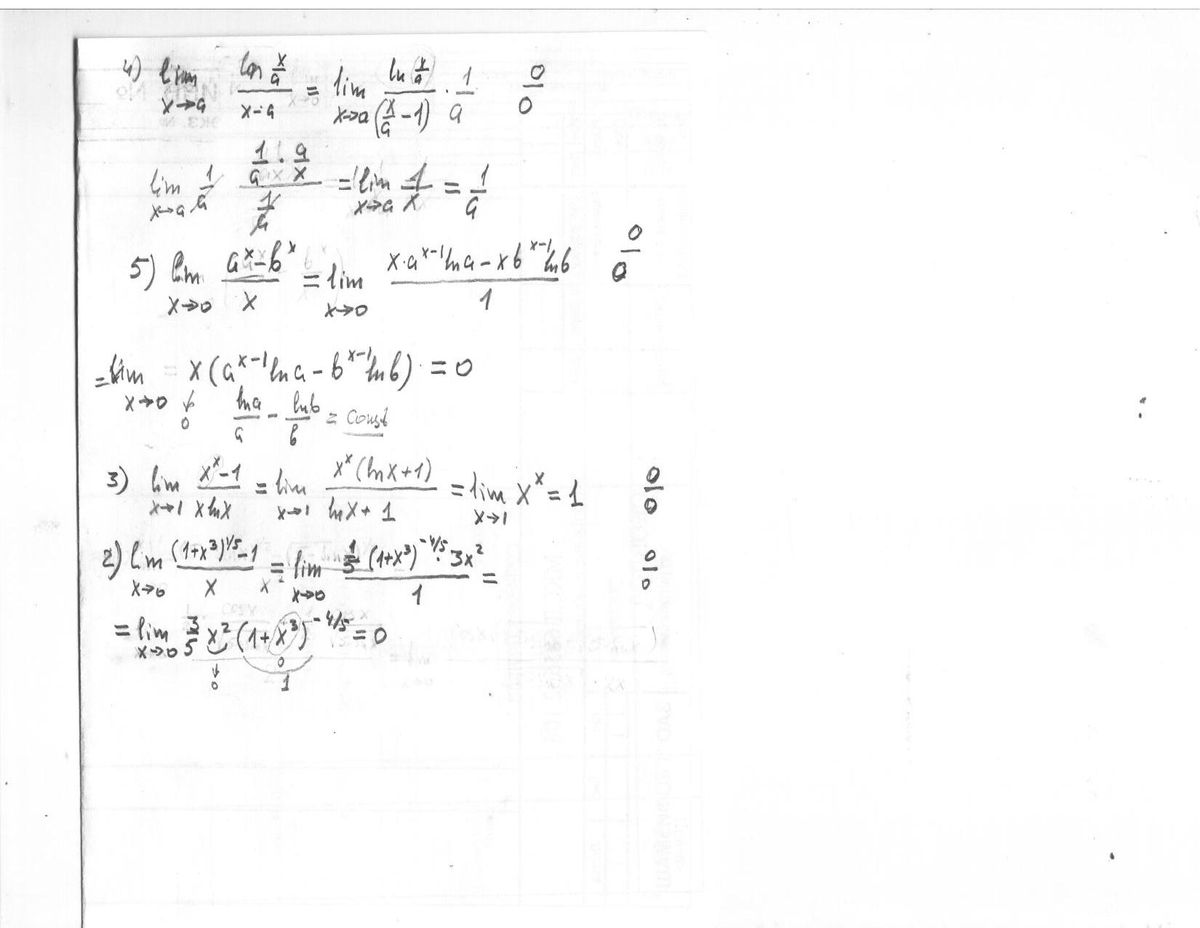 4) lim x→a ln x/a / x-a = lim x→a ln(x/a) / (x/a - 1) · 1/a 0/0
lim x→a 1/a 1/a · a/x / 1/a = lim x→a 1/x = 1/a
5) lim x→0 a^x - b^x / x = lim x→0 x·a^x-1 ln a - x b^x-1 ln b / 1 0/0
= lim x→0 = x (a^x-1 ln a - b^x-1 ln b) = 0
↓ 0 ln a / a - ln b / b = const
3) lim x→1 x^x - 1 / x ln x = lim x→1 x^x (ln x + 1) / ln x + 1 = lim x→1 x^x = 1 0/0
2) lim x→0 (1+x^3)^1/5 - 1 / x = lim x→0 1/5 (1+x^3)^-4/5 · 3x^2 / 1 = 0/0
= lim x→0 3/5 x^2 (1+x^3)^-4/5 = 0
↓ 0 0 1